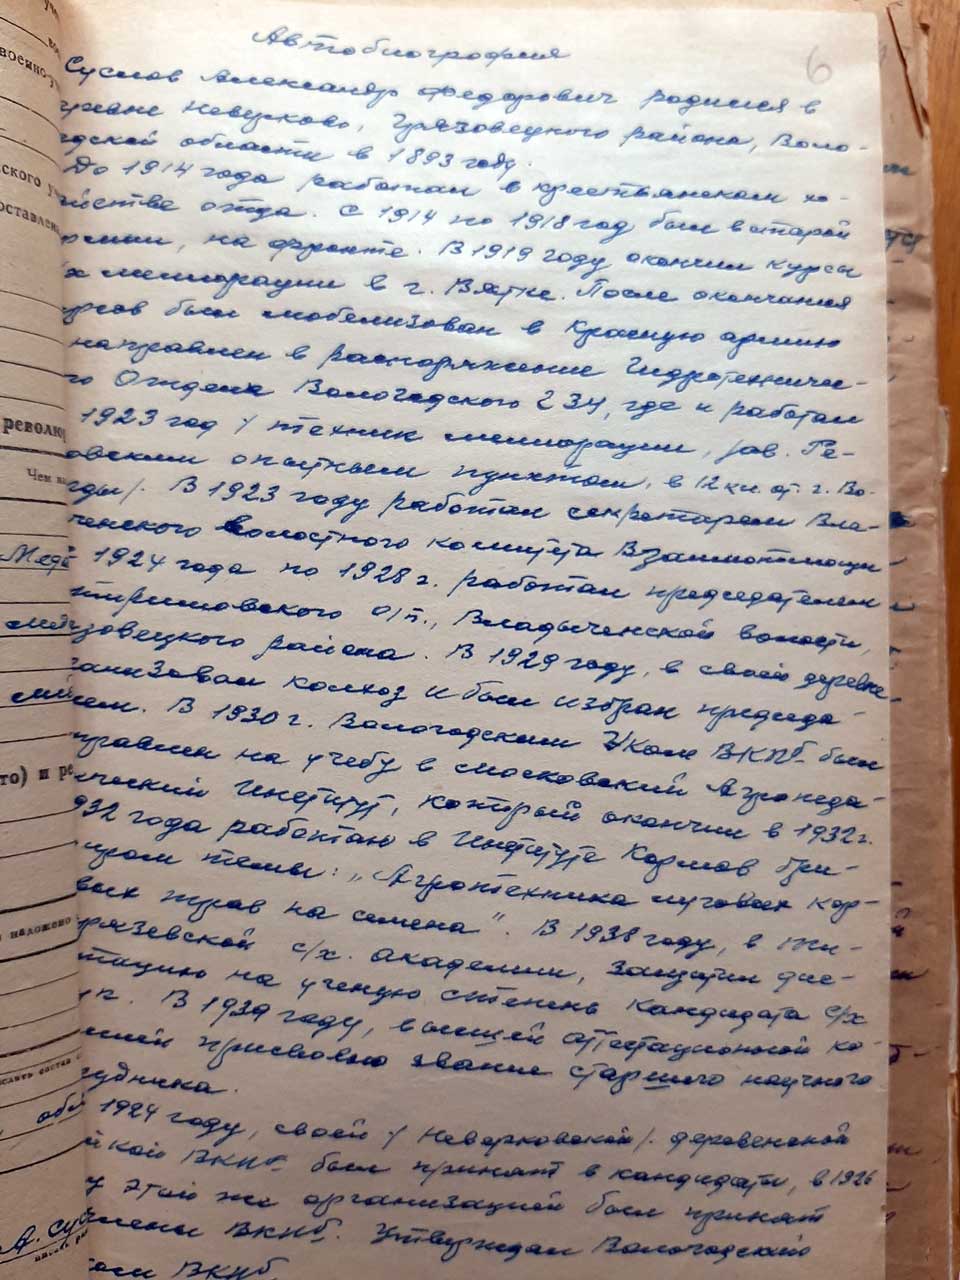 Автобиография
6
Суслов Александр Федорович родился в
Грязовецкого района, Воло-
годской области в 1893 году.
До 1914 года работал в крестьянском хо-
зяйстве отца. С 1914 по 1918 год был в старой
армии, на фронте. В 1919 году окончил курсы
мелиорации в г. Вятке. После окончания
курсов был мобелизован в Красную армию
направлен в распоряжение Гидротехничес-
го Отдела Вологодского ГЗУ, где и работал
1923 год / техник мелиорации, зав. Ге-
овским опытным пунктом, в 12 км. от г. Во-
гды/. В 1923 году работал секретарем Вла-
ченского волостного комитета Взаимопомощи
1924 года по 1928 г. работал председателем
о/п., Владыченской волости,
зовецкого района. В 1929 году, в своей деревне
ганизовал колхоз и был избран председа-
лем. В 1930 г. Вологодским Уком ВКПб был
правлен на учебу в Московский Агропеда-
ический Институт, который окончил в 1932 г.
932 года работаю в Институте Кормов
темы: "Агротехника луговых кор-
вых трав на семена". В 1938 году, в Ти-
рязевской с/х. академии, защитил дис-
тацию на ученую степень кандидата с/х
В 1939 году, высшей аттестационной ко-
сией присвоено звание старшего научного
удника.
1924 году, своей / Невзорковской /. деревенской
йкой ВКПб был принят в кандидаты, в 1926
у этой же организацией был принят
члены ВКПб. Утвержден Вологодским
ком ВКПб
военно-у
ского у
оставлен
револю
Чем на
Меда
меда
то) и ре
наложено
А. Су